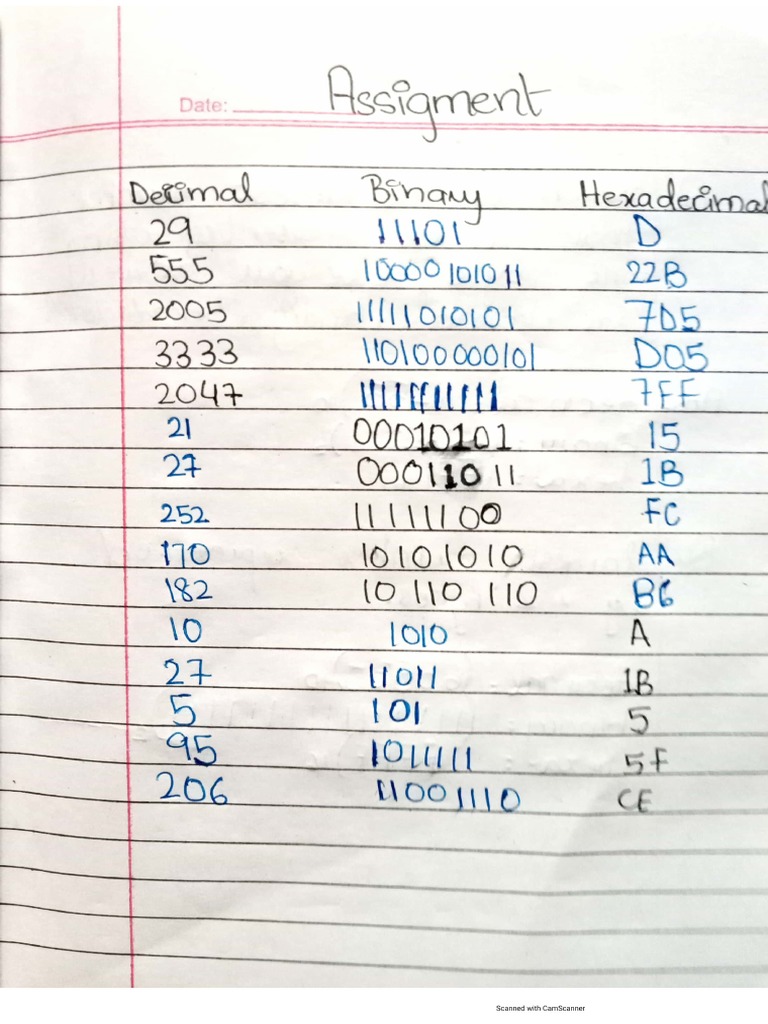 Date: Assigment
Decimal Binary Hexadecimal
29 11101 D
555 10000101011 22B
2005 11111010101 7D5
3333 110100000101 D05
2047 11111111111 7FF
21 00010101 15
27 00011011 1B
252 11111100 FC
170 10101010 AA
182 10 110 110 B6
10 1010 A
27 11011 1B
5 101 5
95 1011111 5F
206 11001110 CE
Scanned with CamScanner